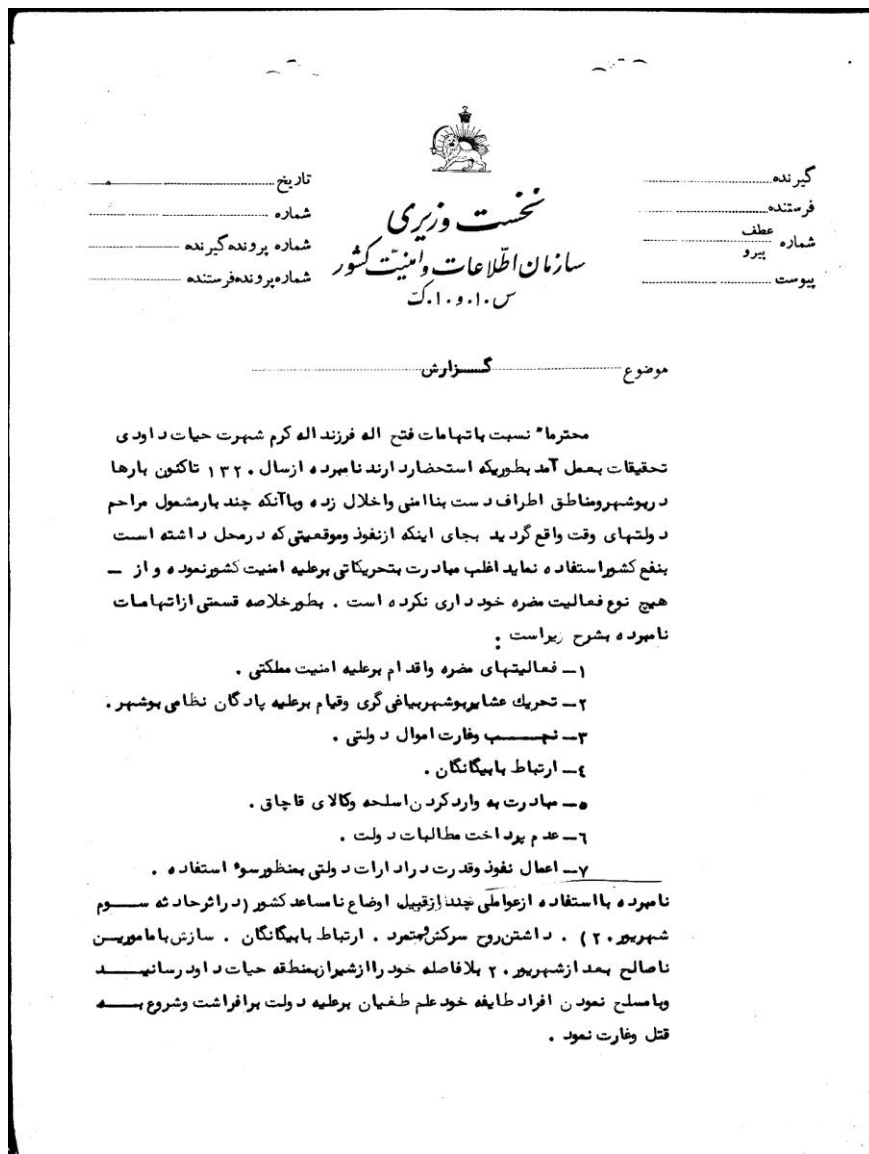 گیرنده
فرستنده
شماره عطف پیرو
پیوست
نخست وزیری
سازمان اطلاعات و امنیت کشور
س.ا.و.ا.ک
تاریخ
شماره
شماره پرونده گیرنده
شماره پرونده فرستنده
موضوع گـــزارش
محترما" نسبت باتهامات فتح اله فرزند اله کرم شهرت حیات داودی
تحقیقات بعمل آمد بطوریکه استحضار دارند نامبرده ازسال ۱۳۲۰ تاکنون بارها
دربوشهرومناطق اطراف دست بناامنی واخلال زده وباآنکه چند بارمشمول مراحم
دولتهای وقت واقع گردید بجای اینکه ازنفوذ وموقعیتی که درمحل داشته است
بنفع کشوراستفاده نماید اغلب مبادرت بتحریکاتی برعلیه امنیت کشورنموده و از —
هیچ نوع فعالیت مضره خودداری نکرده است . بطورخلاصه قسمتی ازاتهامات
نامبرده بشرح زیراست :
۱— فعالیتهای مضره واقدام برعلیه امنیت مملکتی .
۲— تحریك عشایربوشهربیاغی گری وقیام برعلیه پادگان نظامی بوشهر .
۳— نهـــب وغارت اموال دولتی .
٤— ارتباط بابیگانگان .
٥— مبادرت به واردکردن اسلحه وکالای قاچاق .
٦— عدم پرداخت مطالبات دولت .
۷— اعمال نفوذ وقدرت درادارات دولتی بمنظورسوء استفاده .
نامبرده بااستفاده ازعواملی چند ازقبیل اوضاع نامساعد کشور (دراثرحادثه ســوم
شهریور ۲۰) . داشتن روح سرکش ومتمرد . ارتباط بابیگانگان . سازش بامامورین
ناصالح بعد ازشهریور ۲۰ بلافاصله خود راازشیرازبمنطقه حیات داود رسانیـــد
وبامسلح نمودن افراد طایفه خود علم طغیان برعلیه دولت برافراشت وشروع بـــه
قتل وغارت نمود .